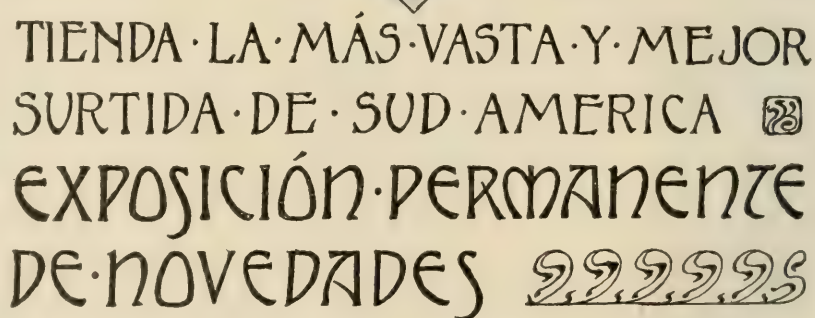 TIENDA·LA·MÁS·VASTA·Y·MEJOR
SURTIDA·DE·SUD·AMERICA
EXPOSICIÓN·PERMANENTE
DE·NOVEDADES